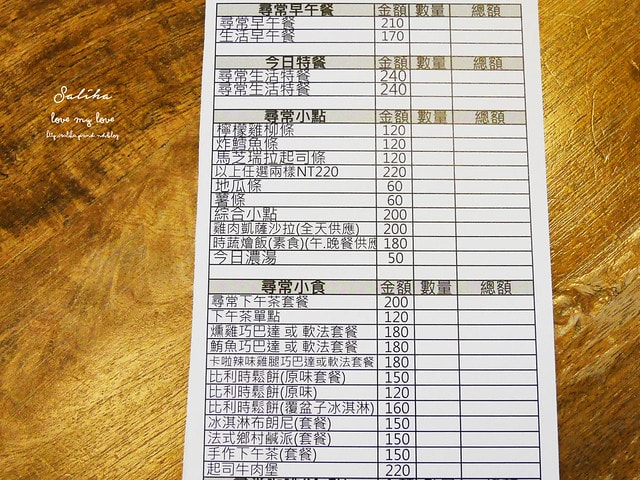 尋常早午餐 金額 數量 總額
尋常早午餐 210
生活早午餐 170
今日特餐 金額 數量 總額
尋常生活特餐 240
尋常生活特餐 240
尋常小點 金額 數量 總額
檸檬雞柳條 120
炸鱈魚條 120
馬芝瑞拉起司條 120
以上任選兩樣NT220 220
地瓜條 60
薯條 60
綜合小點 200
雞肉凱薩沙拉(全天供應) 200
時蔬燴飯(素食)(午.晚餐供應 180
今日濃湯 50
尋常小食 金額 數量 總額
尋常下午茶套餐 200
下午茶單點 120
燻雞巧巴達 或 軟法套餐 180
鮪魚巧巴達 或 軟法套餐 180
卡啦辣味雞腿巧巴達或軟法套餐 180
比利時鬆餅(原味套餐) 150
比利時鬆餅(原味) 120
比利時鬆餅(覆盆子冰淇淋) 160
冰淇淋布朗尼(套餐) 150
法式鄉村鹹派(套餐) 150
手作下午茶(套餐) 150
起司牛肉堡 220
Saliha
love my love